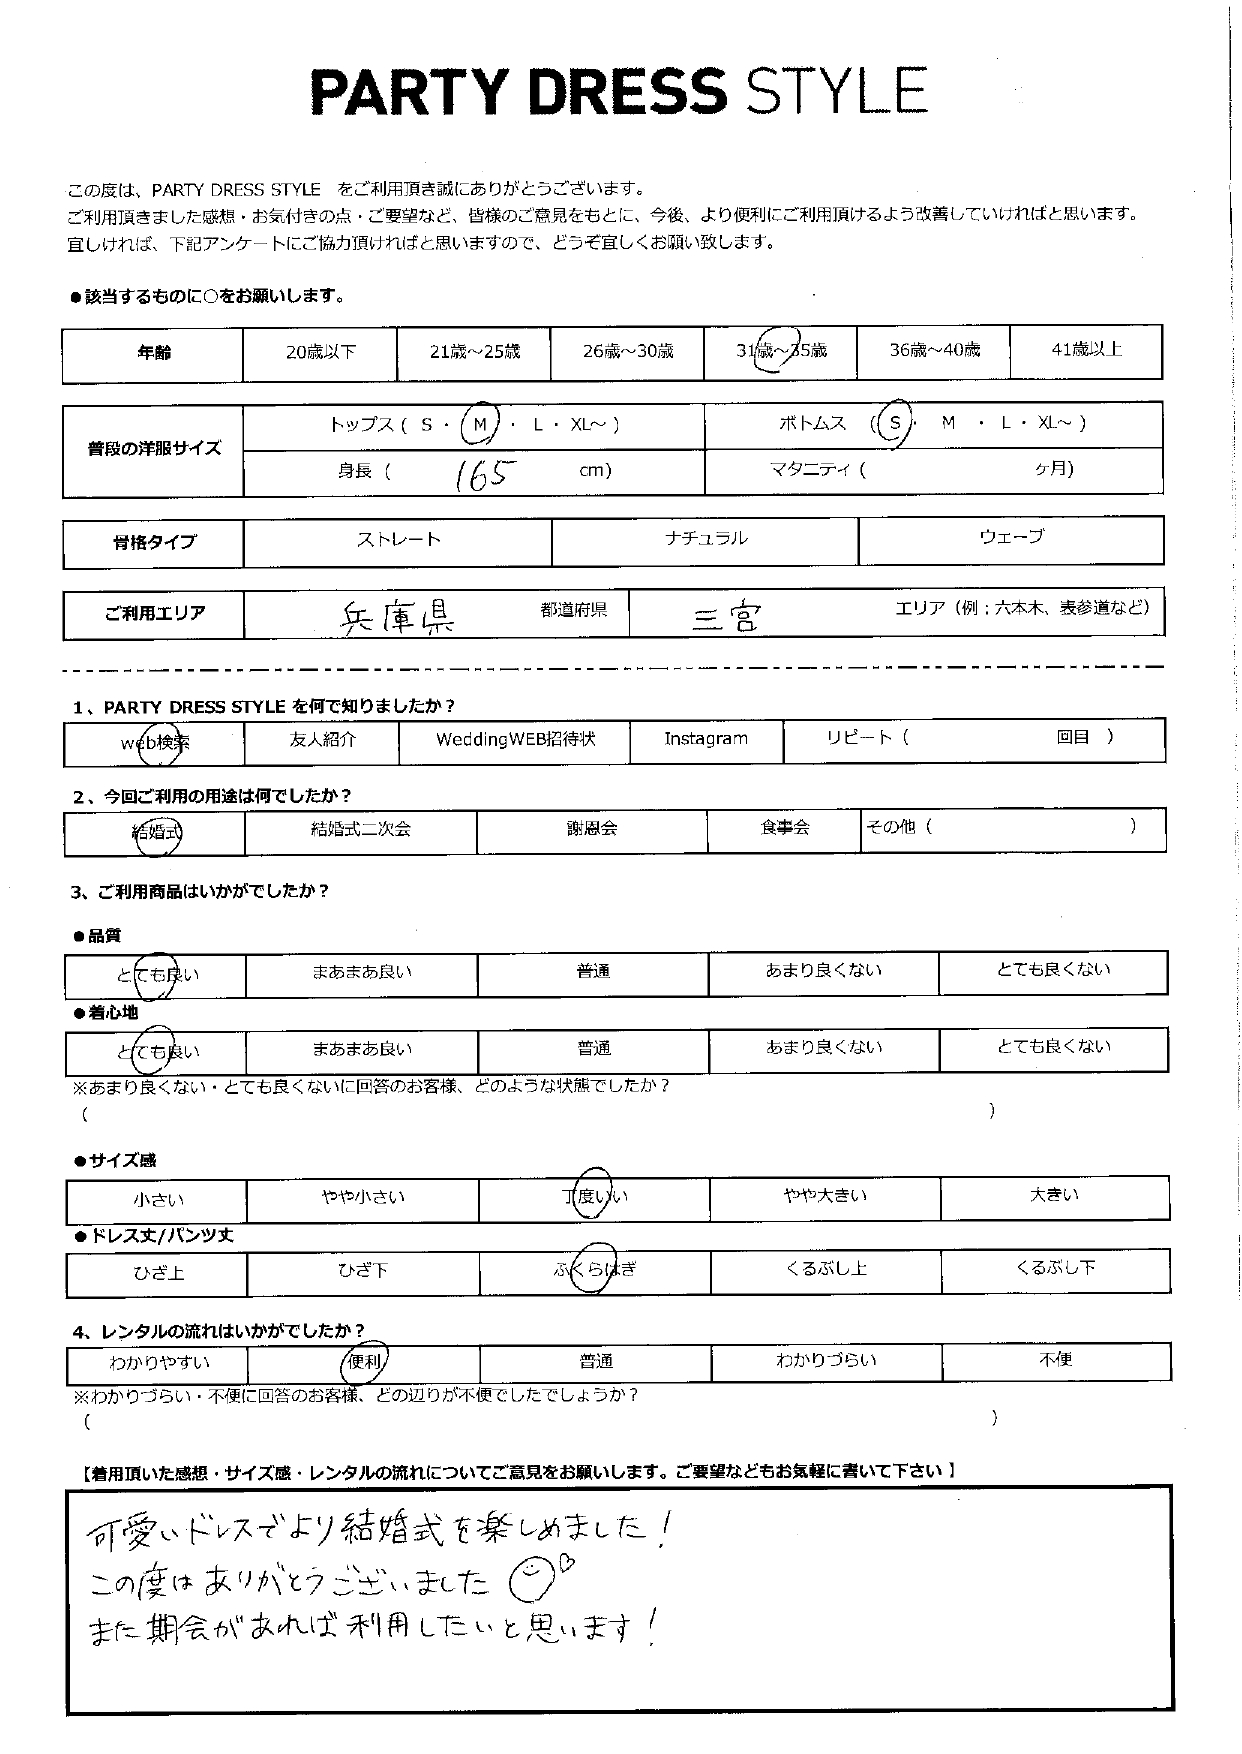 PARTY DRESS STYLE
この度は、PARTY DRESS STYLE をご利用頂き誠にありがとうございます。
ご利用頂きました感想・お気付きの点・ご要望など、皆様のご意見をもとに、今後、より便利にご利用頂けるよう改善していければと思います。
宜しければ、下記アンケートにご協力頂ければと思いますので、どうぞ宜しくお願い致します。
●該当するものに○をお願いします。
年齢 20歳以下 21歳～25歳 26歳～30歳 31歳～35歳 36歳～40歳 41歳以上
普段の洋服サイズ
トップス ( S ・ M ・ L ・ XL～ ) ボトムス ( S ・ M ・ L ・ XL～ )
身長 ( 165 cm) マタニティ ( ヶ月)
骨格タイプ ストレート ナチュラル ウェーブ
ご利用エリア 兵庫県 都道府県 三宮 エリア（例；六本木、表参道など）
1、PARTY DRESS STYLE を何で知りましたか？
web検索 友人紹介 WeddingWEB招待状 Instagram リピート ( 回目 )
2、今回ご利用の用途は何でしたか？
結婚式 結婚式二次会 謝恩会 食事会 その他 ( )
3、ご利用商品はいかがでしたか？
●品質
とても良い まあまあ良い 普通 あまり良くない とても良くない
●着心地
とても良い まあまあ良い 普通 あまり良くない とても良くない
※あまり良くない・とても良くないに回答のお客様、どのような状態でしたか？
( )
●サイズ感
小さい やや小さい 丁度いい やや大きい 大きい
●ドレス丈/パンツ丈
ひざ上 ひざ下 ふくらはぎ くるぶし上 くるぶし下
4、レンタルの流れはいかがでしたか？
わかりやすい 便利 普通 わかりづらい 不便
※わかりづらい・不便に回答のお客様、どの辺りが不便でしたでしょうか？
( )
【着用頂いた感想・サイズ感・レンタルの流れについてご意見をお願いします。ご要望などもお気軽に書いて下さい 】
可愛いドレスでより結婚式を楽しめました！
この度はありがとうございました
また期会があれば利用したいと思います！